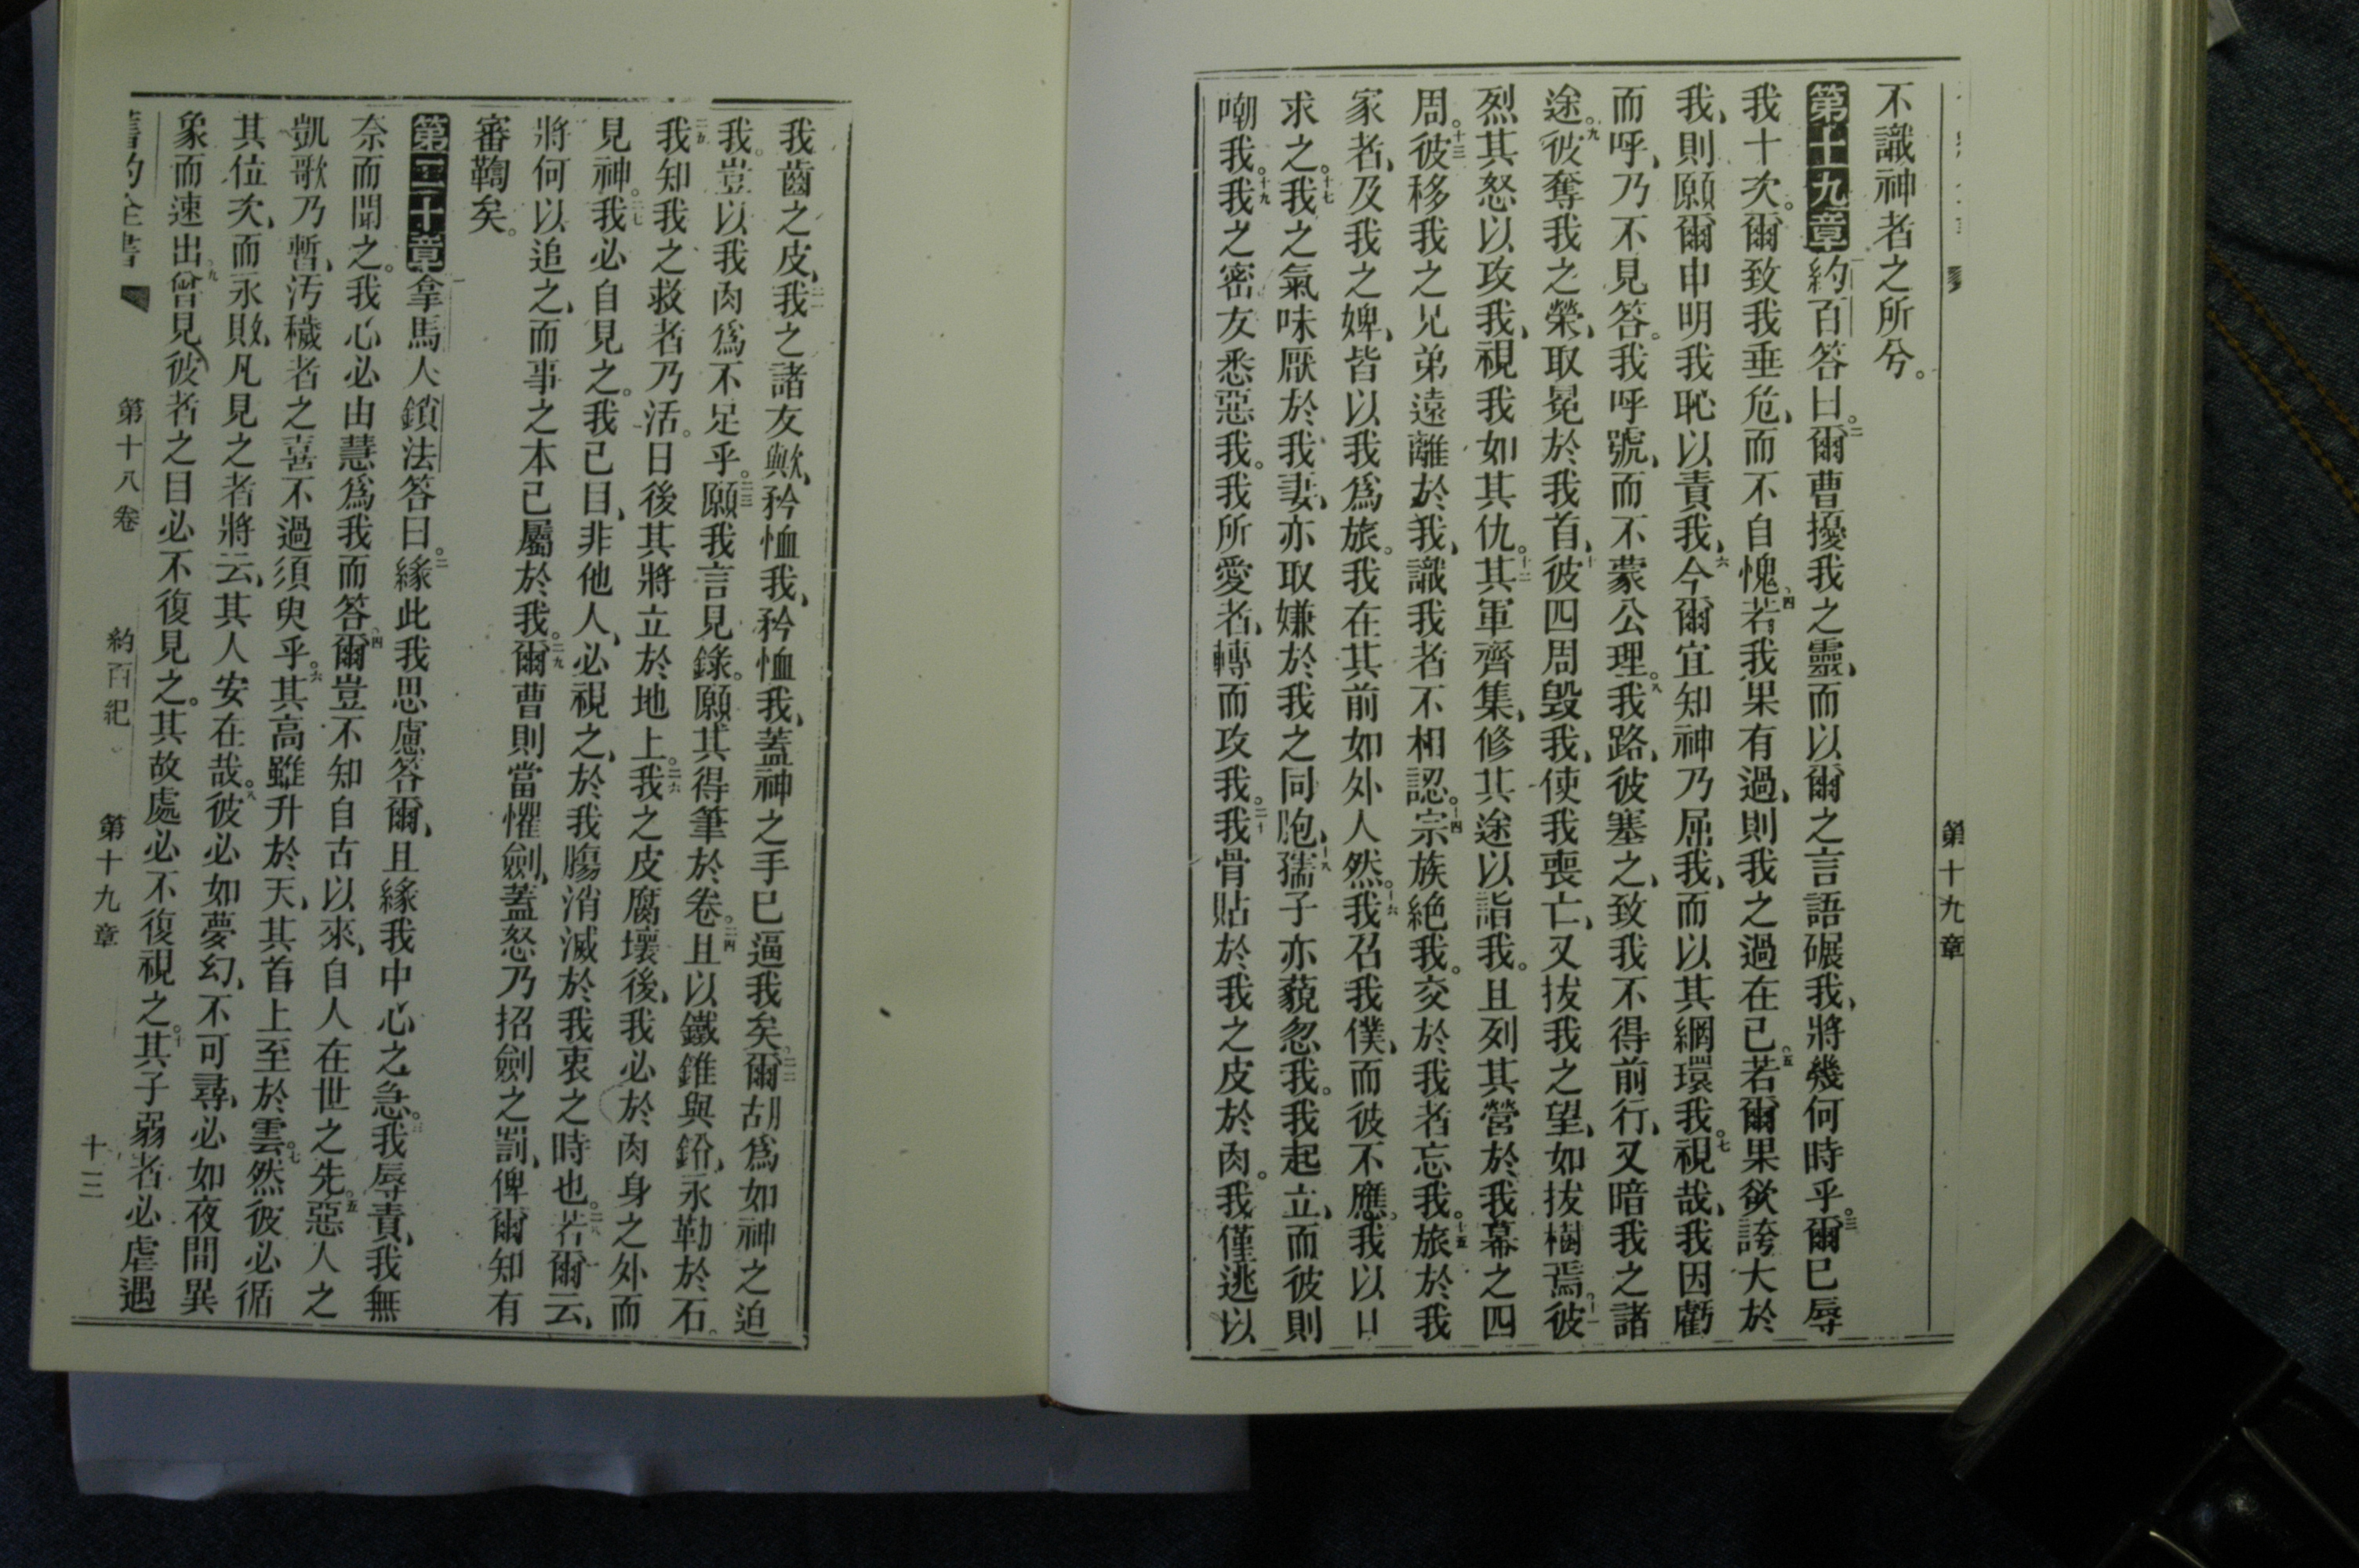 第十九章
不識神者之所兮。
第十九章約百答曰。二爾曹擾我之靈、而以爾之言語碾我、將幾何時乎。三爾已辱
我十次。爾致我垂危、而不自愧、四若我果有過、則我之過在己、五若爾果欲誇大於
我、則願爾申明我恥以責我、六今爾宜知神乃屈我、而以其網環我。七視哉、我因虧
而呼、乃不見答。我呼號、而不蒙公理。八我路、彼塞之、致我不得前行、又暗我之諸
途。九彼奪我之榮、取冕於我首、十彼四周毀我、使我喪亡、又拔我之望、如拔樹焉。十一彼
烈其怒以攻我、視我如其仇。十二其軍齊集、修其途以詣我。且列其營於我幕之四
周。十三彼移我之兄弟遠離於我、識我者不相認。十四宗族絶我。交於我者忘我。十五旅於我
家者、及我之婢、皆以我爲旅。我在其前如外人然。十六我召我僕、而彼不應。我以口
求之。十七我之氣味厭於我妻、亦取嫌於我之同胞、十八孺子亦藐忽我。我起立、而彼則
嘲我。十九我之密友悉惡我。我所愛者、轉而攻我。二十我骨貼於我之皮於肉。我僅逃以
我齒之皮、二一我之諸友歟、矜恤我、矜恤我、蓋神之手已逼我矣、二二爾胡爲如神之迫
我。豈以我肉爲不足乎。二三願我言見錄。願其得筆於卷。二四且以鐵錐與鉛、永勒於石。
二五我知我之救者乃活。日後其將立於地上。二六我之皮腐壞後、我必於肉身之外而
見神。二七我必自見之。我己目、非他人、必視之、於我膓消滅於我衷之時也。二八若爾云、
將何以追之、而事之本已屬於我。二九爾曹則當懼劍、蓋怒乃招劍之罰、俾爾知有
審鞫矣。
第二十章拿馬人鎖法答曰。二緣此我思慮答爾、且緣我中心之急。三我辱責、我無
奈而聞之。我心必由慧爲我而答、四爾豈不知自古以來、自人在世之先。五惡人之
凱歌乃暫、汚穢者之喜不過須臾乎。六其高雖升於天、其首上至於雲。七然彼必循
其位次、而永敗、凡見之者將云、其人安在哉。八彼必如夢幻、不可尋、必如夜間異
象而速出、九曾見彼者之目必不復見之。其故處必不復視之。十其子弱者必虐遇
舊約全書 第十八卷 約百紀 第十九章 十二